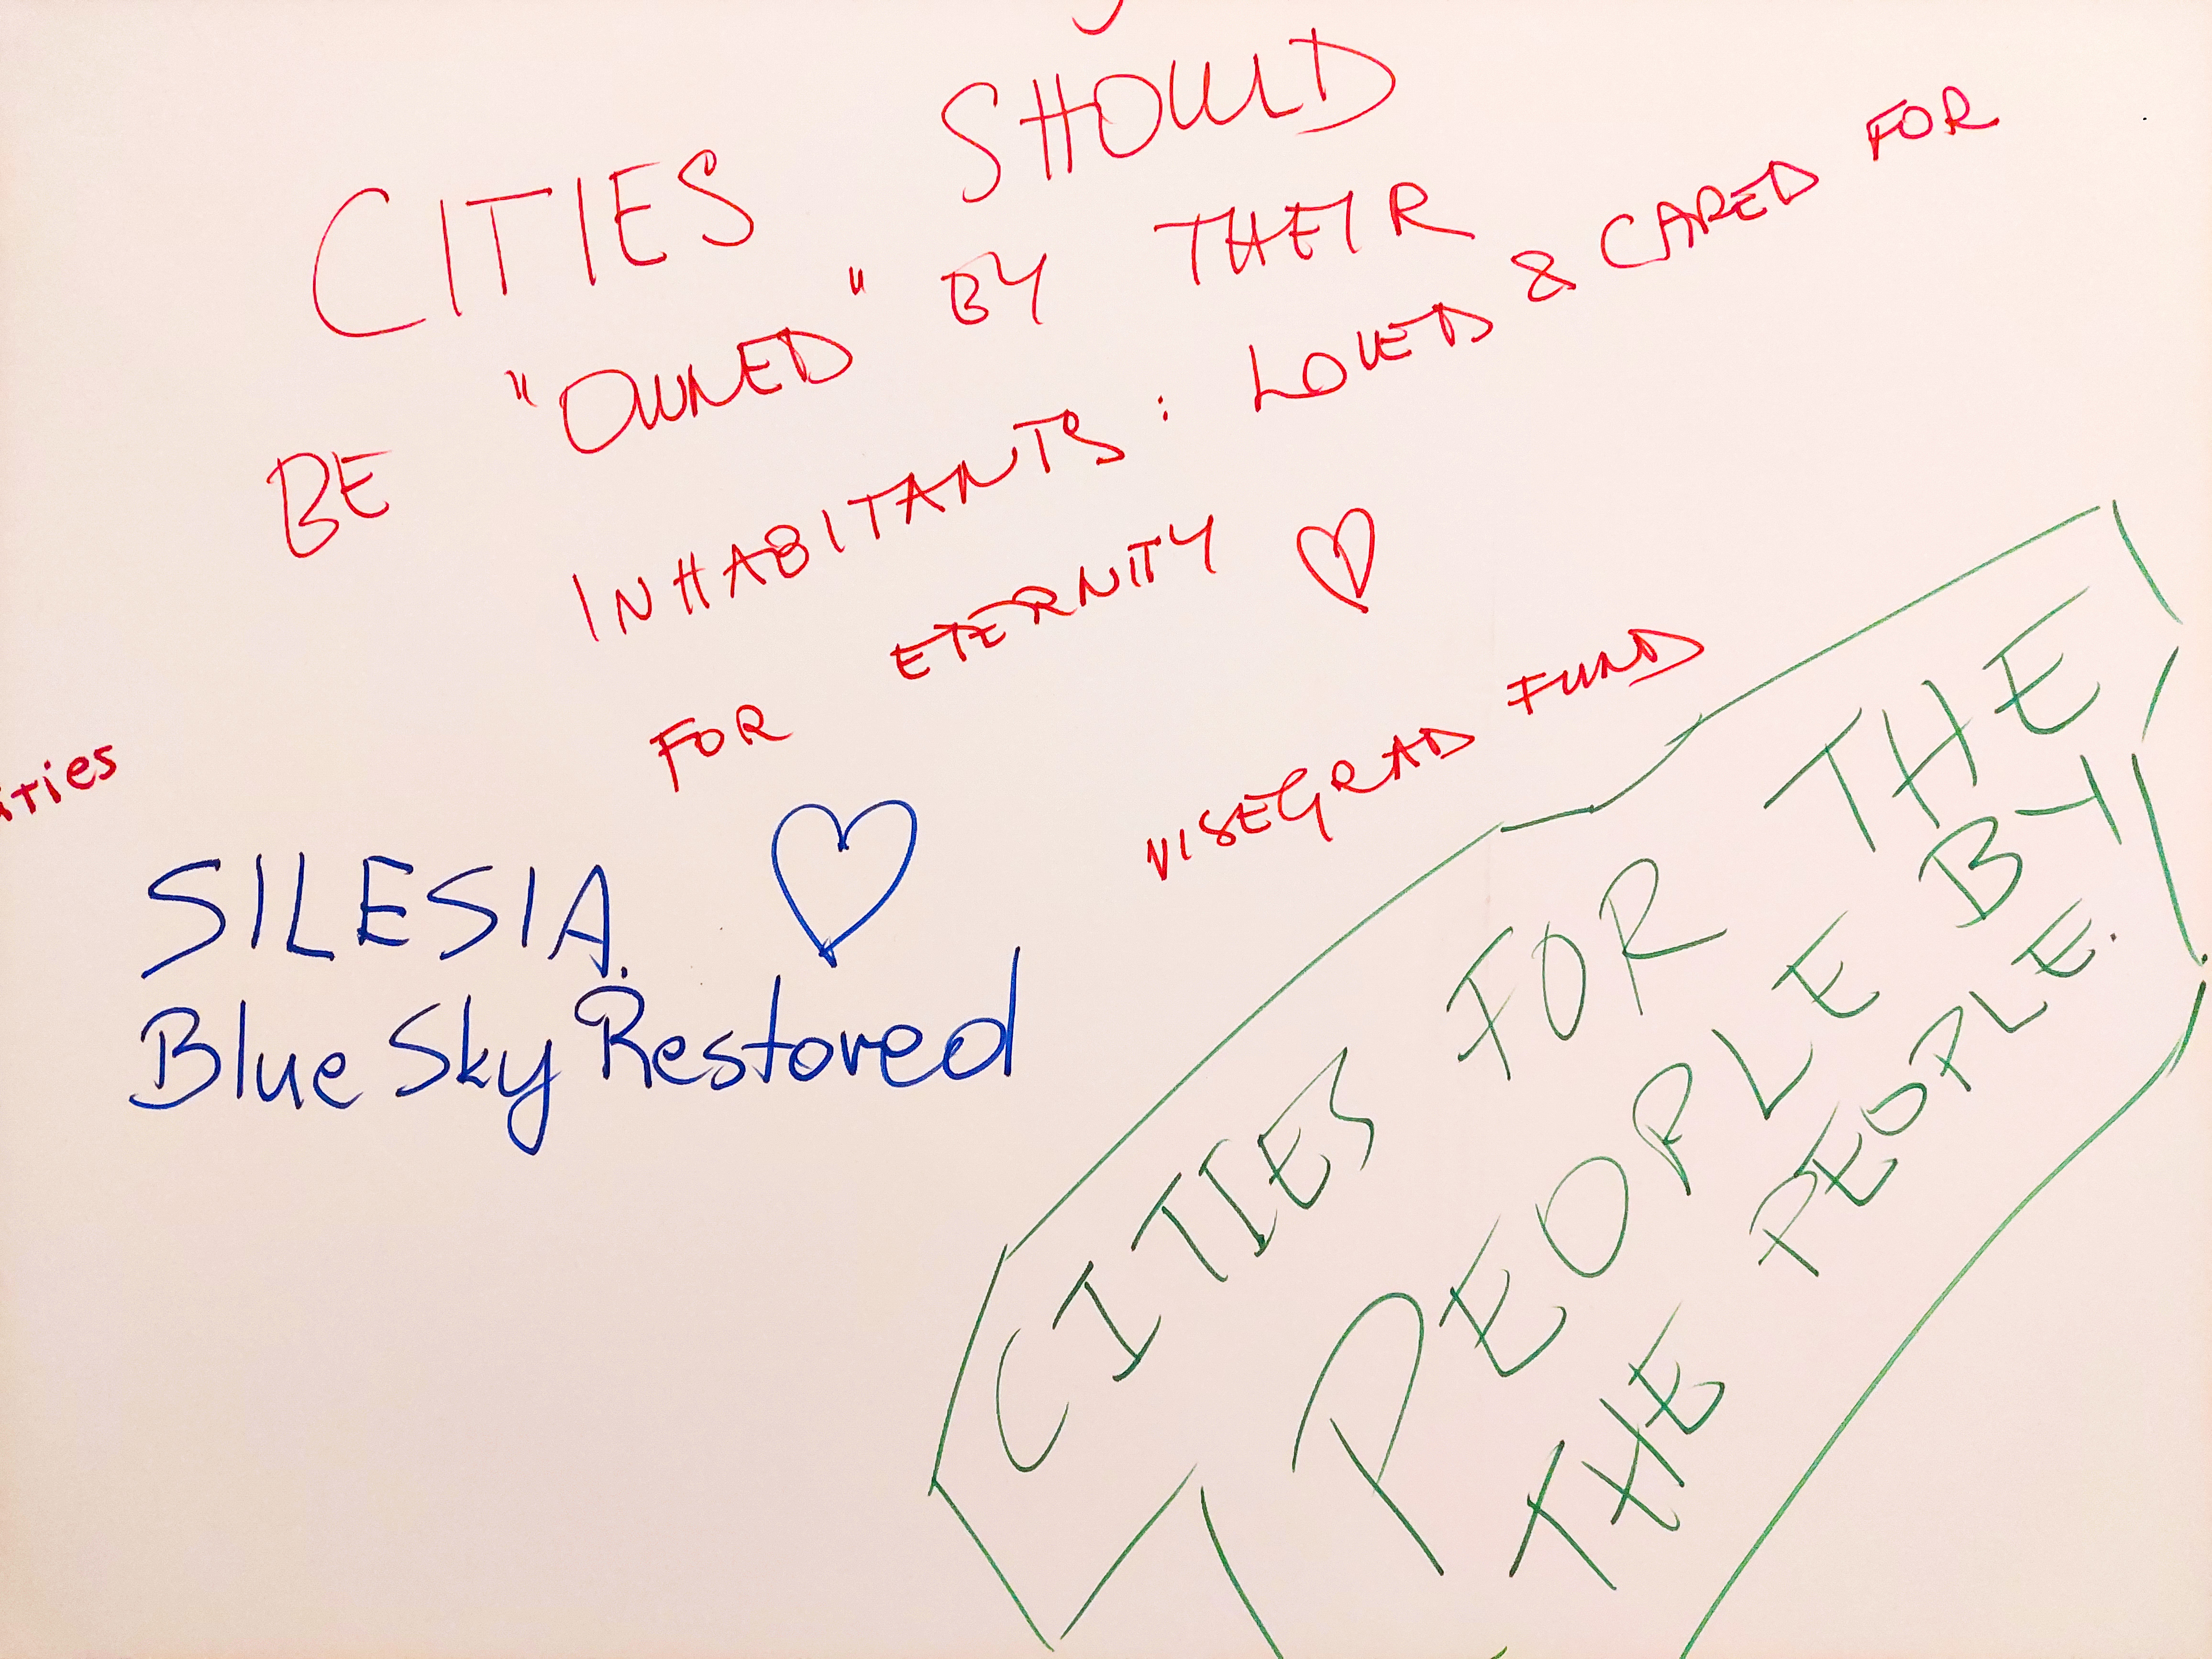 CITIES SHOULD
BE "OWNED" BY THEIR
INHABITANTS: LOVED & CARED FOR
FOR ETERNITY ♡
VISEGRAD FUND
ities
SILESIA. ♡
Blue Sky Restored
CITIES FOR THE
PEOPLE BY
THE PEOPLE.